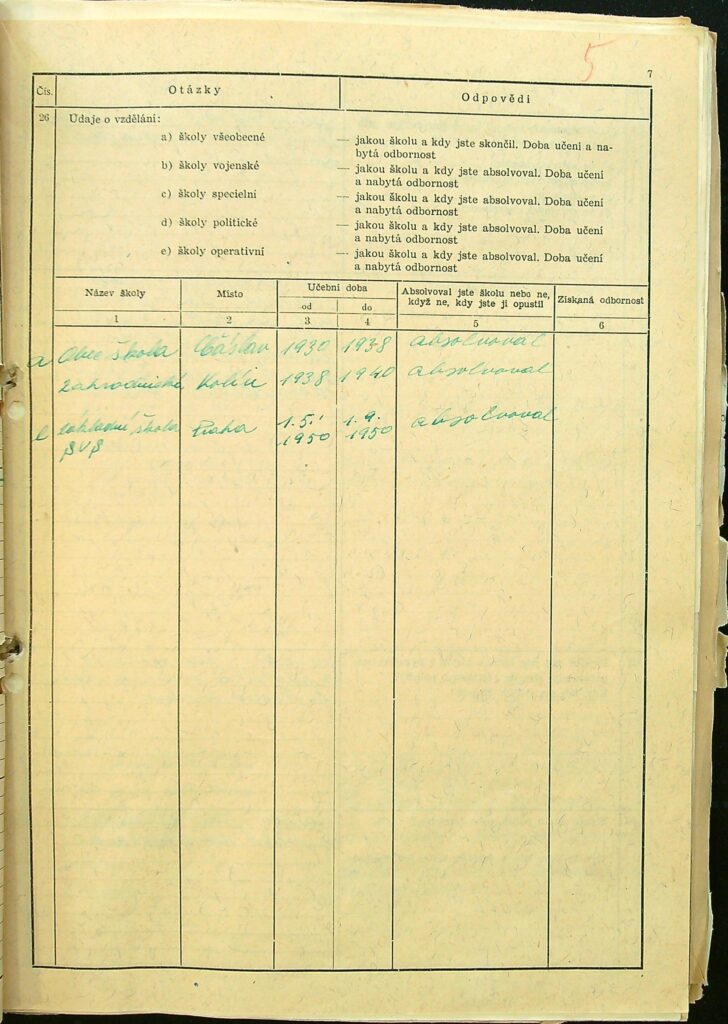 5
7
Čís.
Otázky
Odpovědi
26
Údaje o vzdělání:
a) školy všeobecné
— jakou školu a kdy jste skončil. Doba učení a na-
bytá odbornost
b) školy vojenské
— jakou školu a kdy jste absolvoval. Doba učení
a nabytá odbornost
c) školy specielní
— jakou školu a kdy jste absolvoval. Doba učení
a nabytá odbornost
d) školy politické
— jakou školu a kdy jste absolvoval. Doba učení
a nabytá odbornost
e) školy operativní
— jakou školu a kdy jste absolvoval. Doba učení
a nabytá odbornost
Název školy
Místo
Učební doba
od
do
Absolvoval jste školu nebo ne,
když ne, kdy jste ji opustil
Získaná odbornost
1 2 3 4 5 6
a Obec škola Čáslav 1930 1938 absolvoval
Zahradnická Kolín 1938 1940 absolvoval
e základní škola Praha 1.5. 1.9. absolvoval
1950 1950